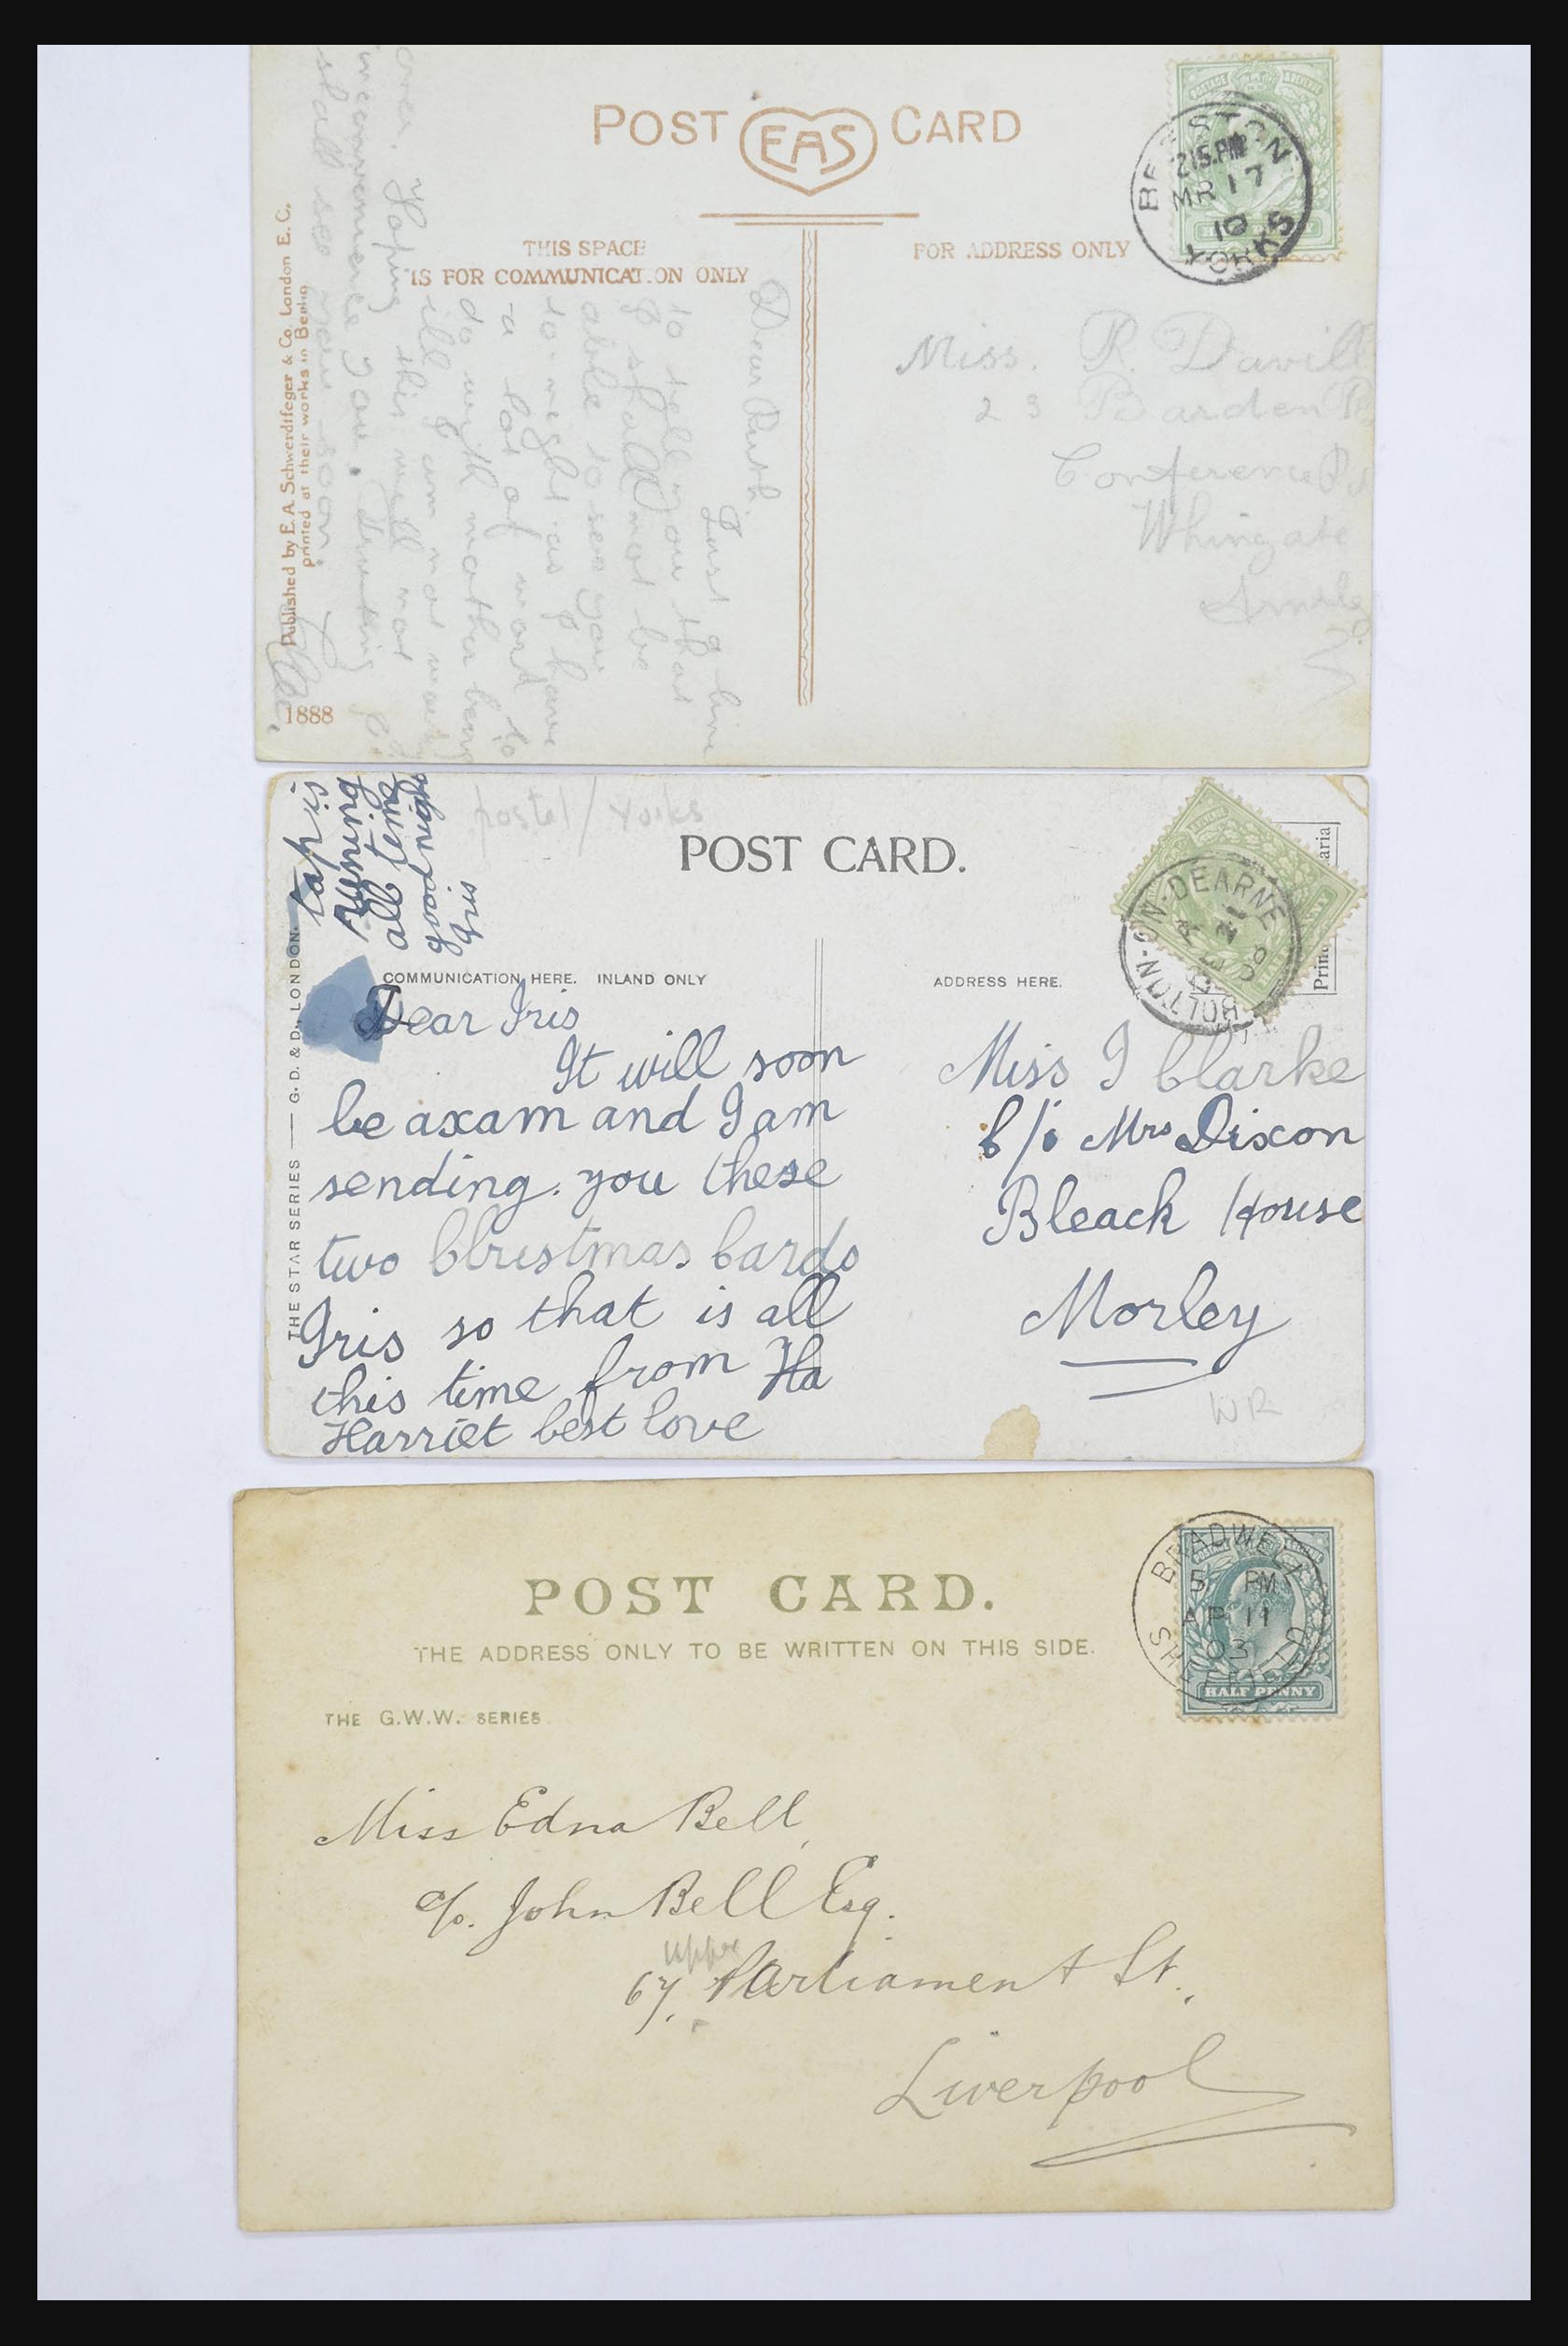 POST EAS CARD
THIS SPACE
IS FOR COMMUNICATION ONLY
FOR ADDRESS ONLY
BEESTON
215.PM
MR 17
10
YORKS
Miss. R. Davill
23 Barden
Conference
Whingate
Armley
Dear Ruth.
Just a line
to tell you that
I shall not be
able to see you
to-night as I have
a lot of work to
do with mother being
ill I am not
this will not
inconvenience you.
shall see you soon.
over. Hoping
Published by E.A. Schwerdtfeger & Co. London E.C.
printed at their works in Berlin
1888
tap is
runing
all time
good night
Iris
postel / Yorks
POST CARD.
COMMUNICATION HERE. INLAND ONLY
ADDRESS HERE.
BOLTON-ON-DEARNE
THE STAR SERIES — G. D. & D., LONDON.
Dear Iris
It will soon
be axam and I am
sending. you these
two Christmas Cards
Iris so that is all
this time from Ha
Harriet best love
Miss I Clarke
C/o Mrs Dixon
Bleack House
Morley
WR
POST CARD.
THE ADDRESS ONLY TO BE WRITTEN ON THIS SIDE.
THE G.W.W. SERIES
BRADWELL
5 PM
AP 11
03
SHEFFIELD
HALF PENNY
Miss Edna Bell,
c/o. John Bell Esq.
upper
67, Parliament St.,
Liverpool